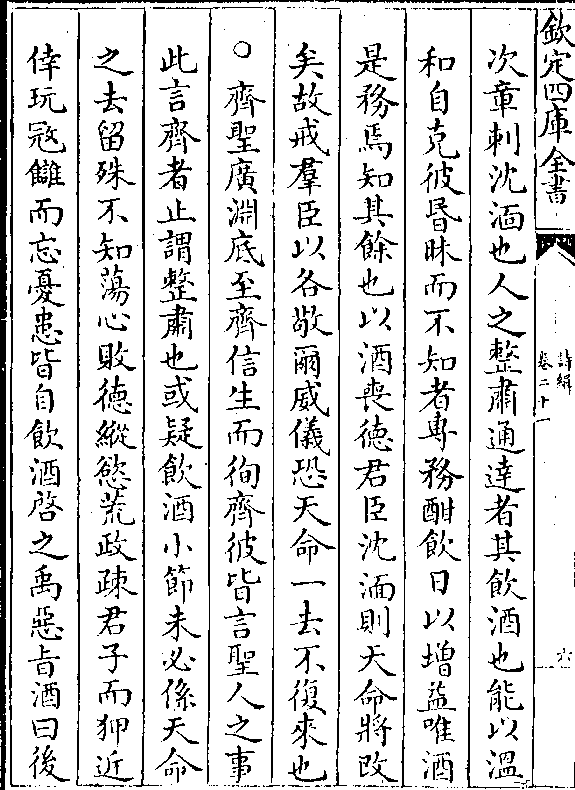 欽定四庫全書
詩緝
卷二十一
六
次章刺沈湎也人之整肅通達者其飲酒也能以溫
和自克彼昬昧而不知者專務酣飲日以增益唯酒
是務焉知其餘也以酒喪德君臣沈湎則天命將改
矣故戒羣臣以各敬爾威儀恐天命一去不復來也
○齊聖廣淵底至齊信生而徇齊彼皆言聖人之事
此言齊者止謂整肅也或疑飲酒小節未必係天命
之去留殊不知蕩心敗德縱慾荒政疎君子而狎近
倖玩宼讎而忘憂患皆自飲酒啓之禹惡旨酒曰後